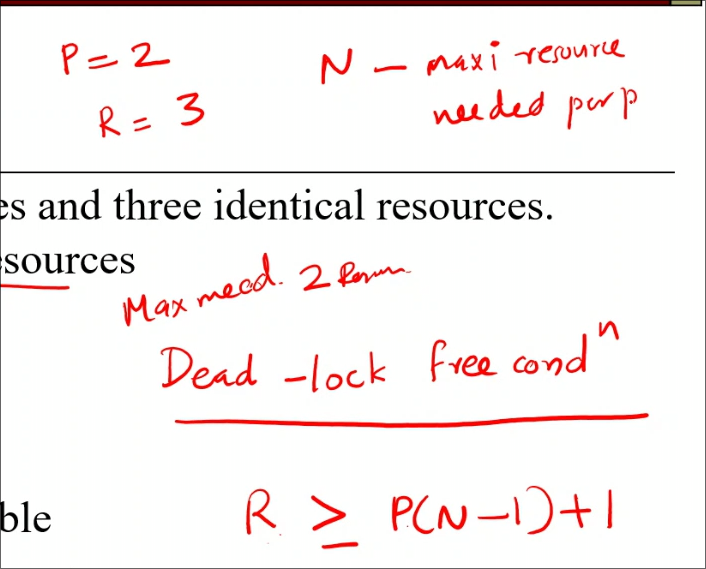 P = 2
N - maxi resource
R = 3
needed per p
es and three identical resources.
esources
Max need. 2
Dead - lock free condⁿ
R ≥ P(N-1)+1
ble